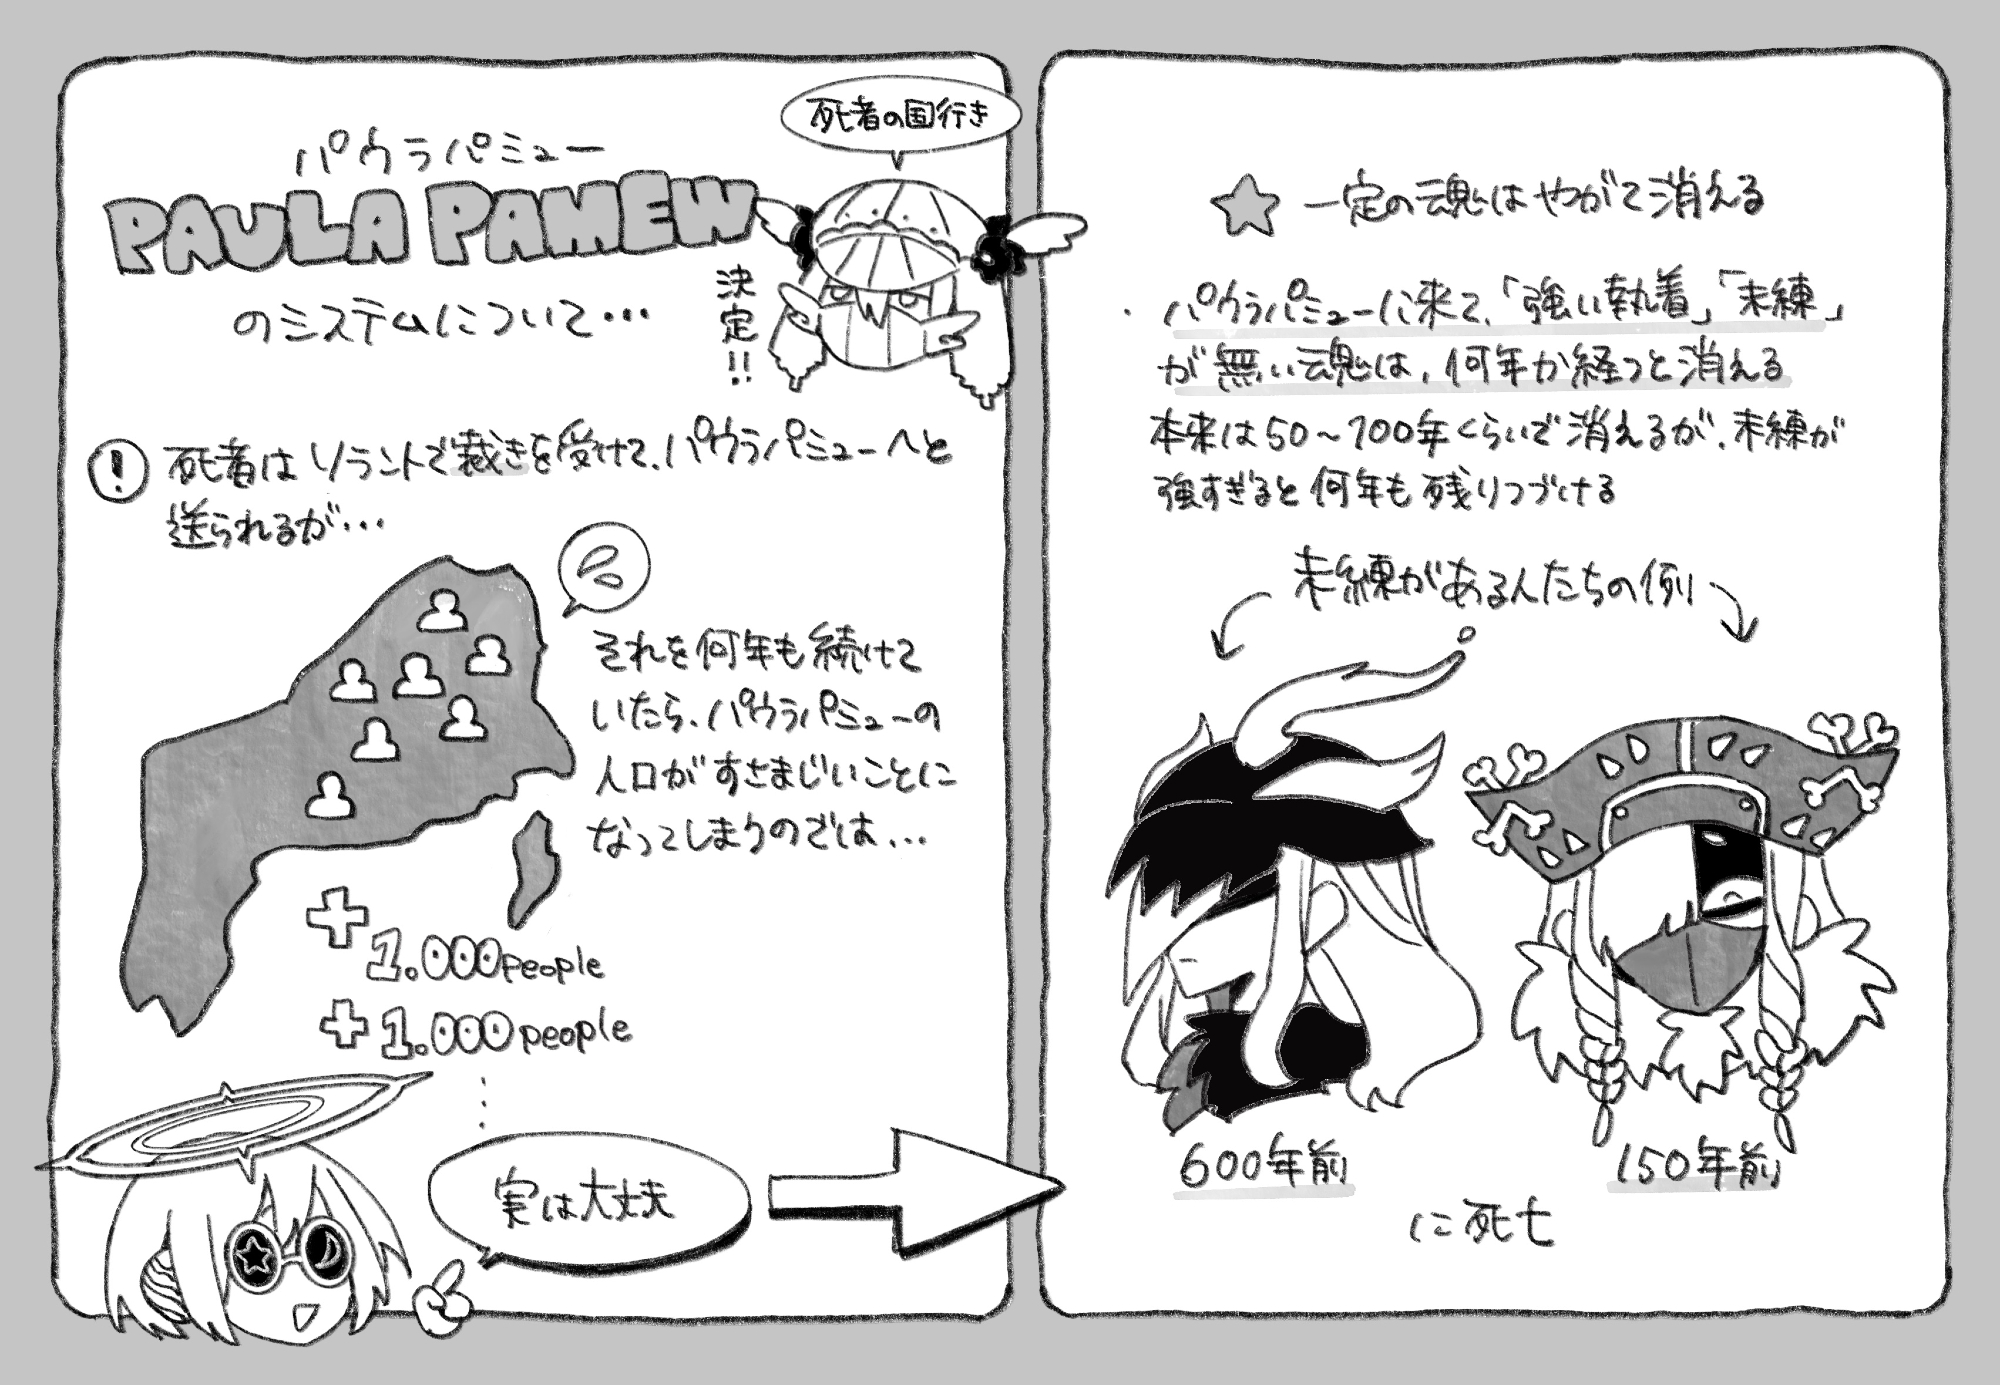 死者の国行き
パウラパミュー
PAULA PAMEW
のシステムについて…
決定!!
! 死者はソラントで裁きを受けて、パウラパミューへと
送られるが…
それを何年も続けて
いたら、パウラパミューの
人口がすさまじいことに
なってしまうのでは…
+1.000people
+1.000people
実は大丈夫
★ 一定の魂はやがて消える
・パウラパミューに来て、「強い執着」「未練」
が無い魂は、何年か経つと消える
本来は50~100年くらいで消えるが、未練が
強すぎると何年も残りつづける
未練がある人たちの例
600年前
150年前
に死亡